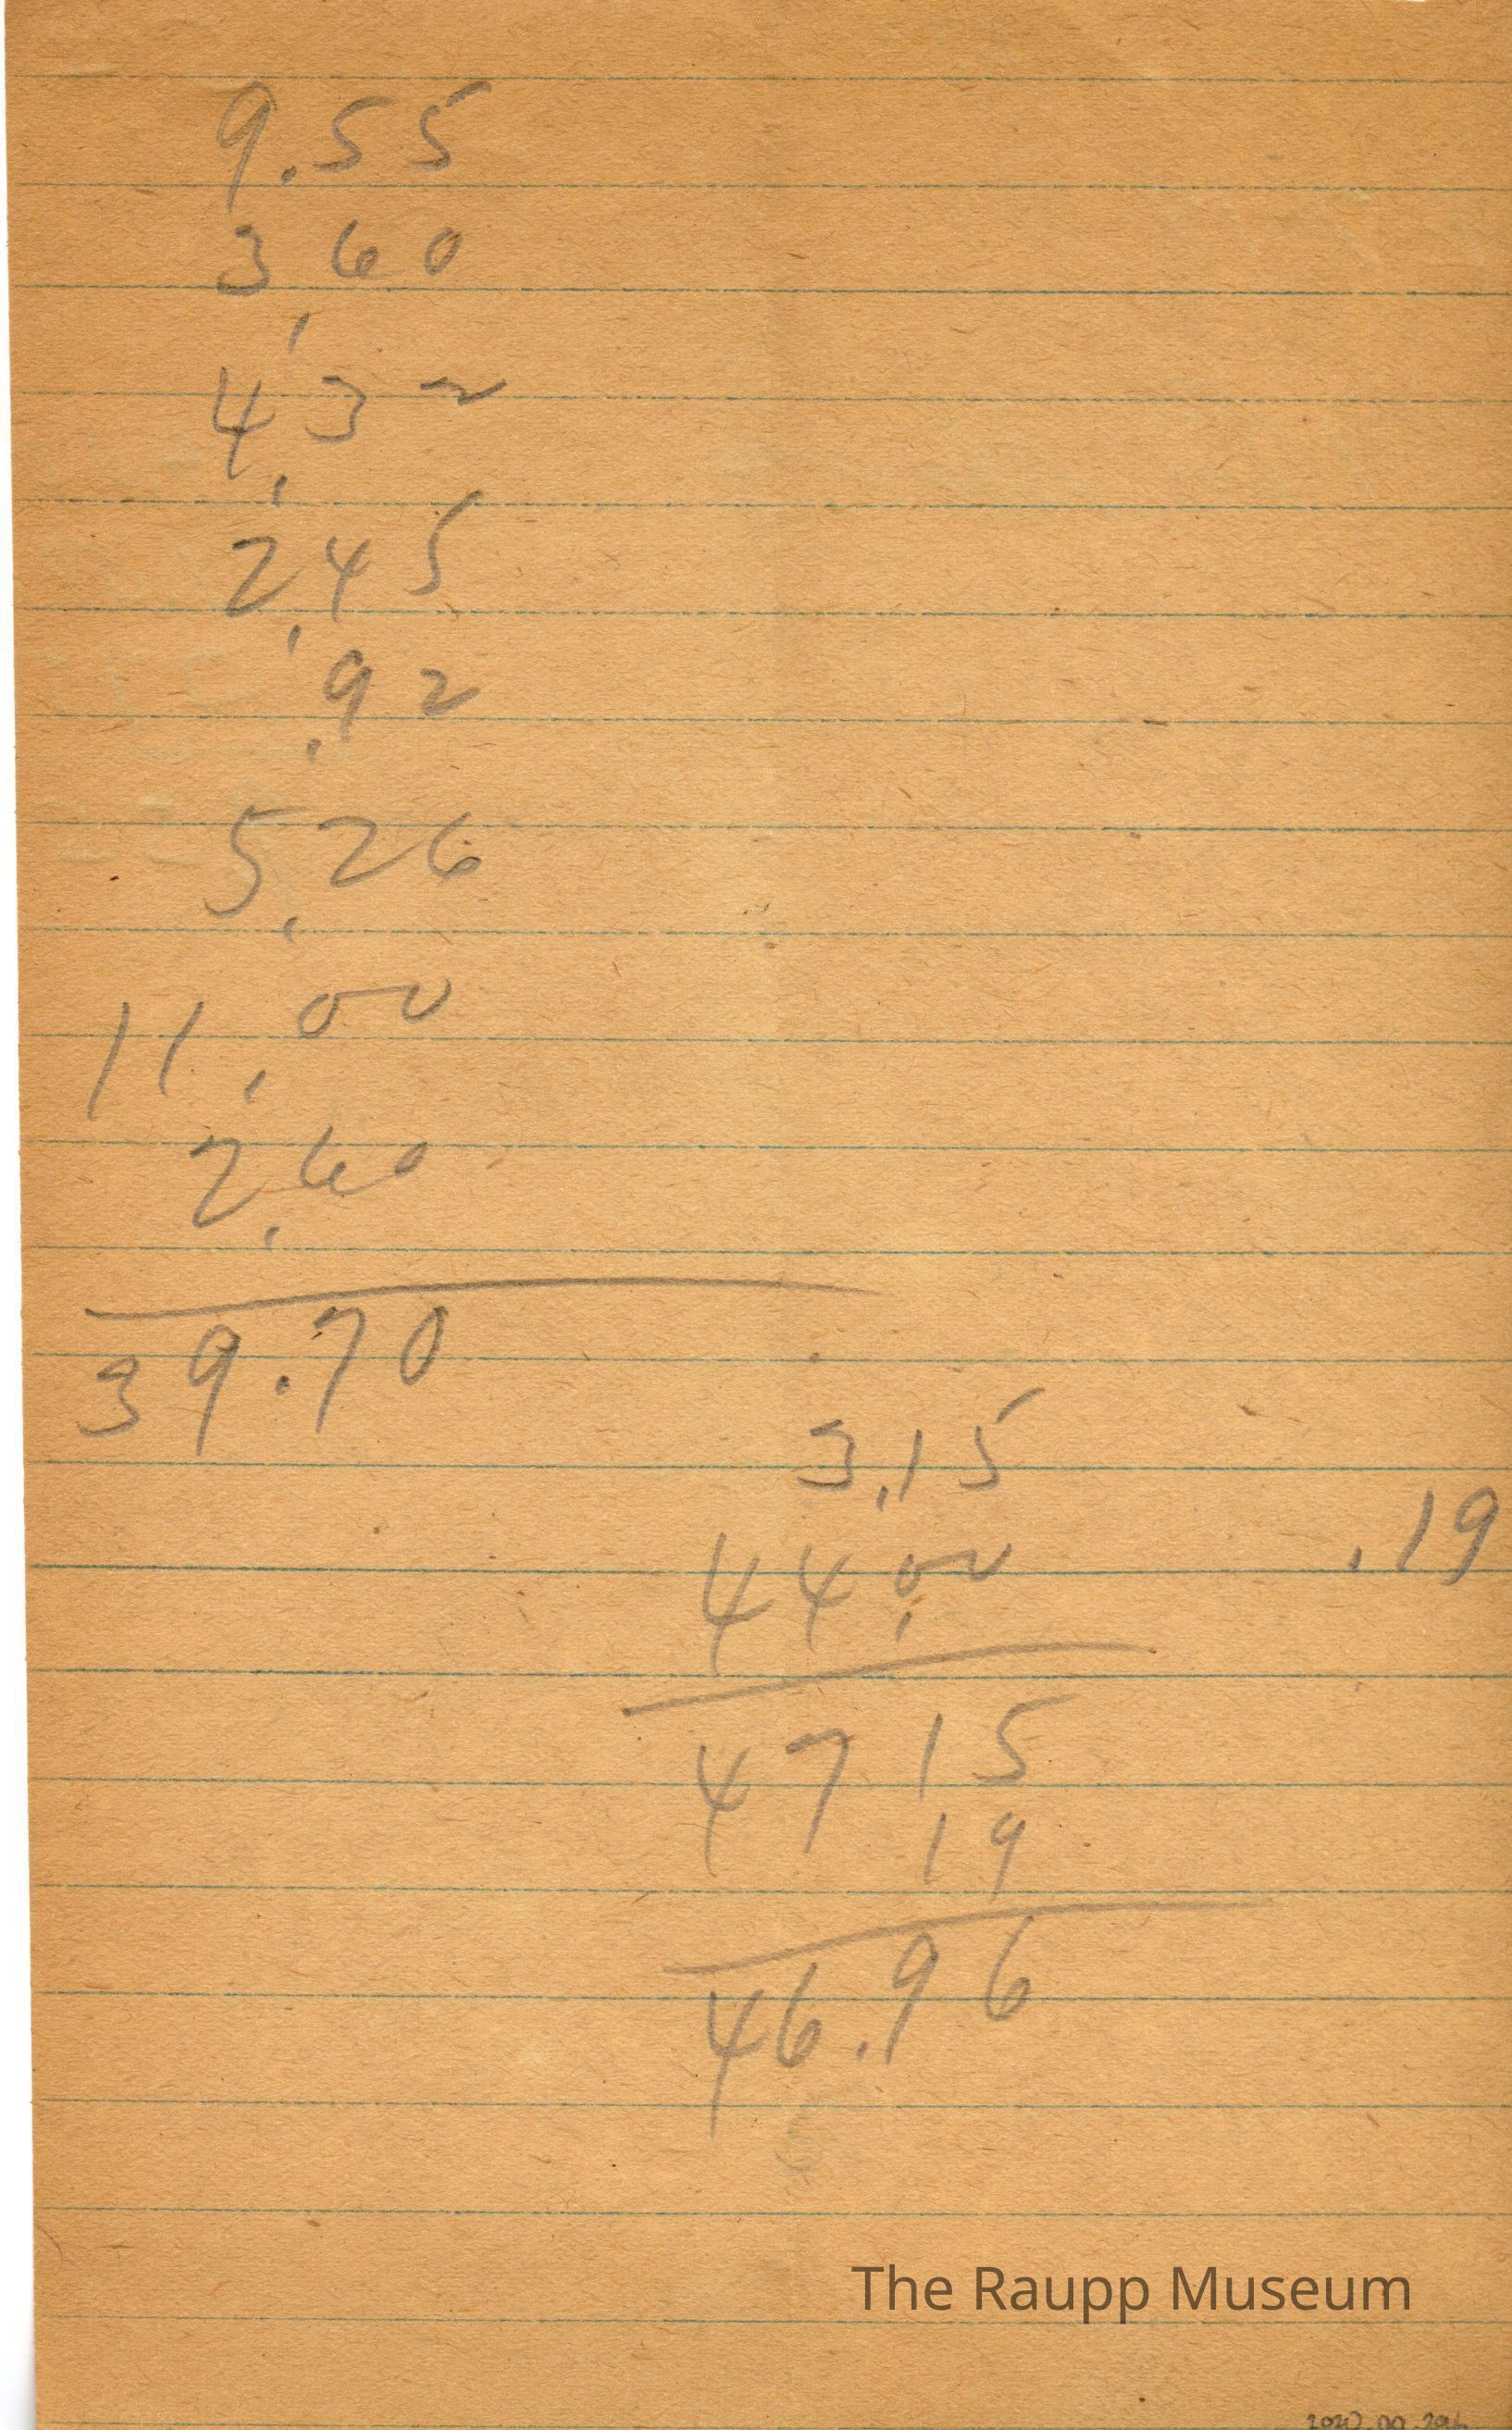 9.55
3,60
4,32
2,45
.92
5,26
11,00
2,60
39.70
3,15
.19
44,00
47 15
19
46.96
The Raupp Museum